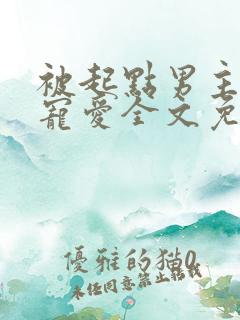 被起點男主
寵愛全文免
優雅的貓0
未任同意禁止轉載